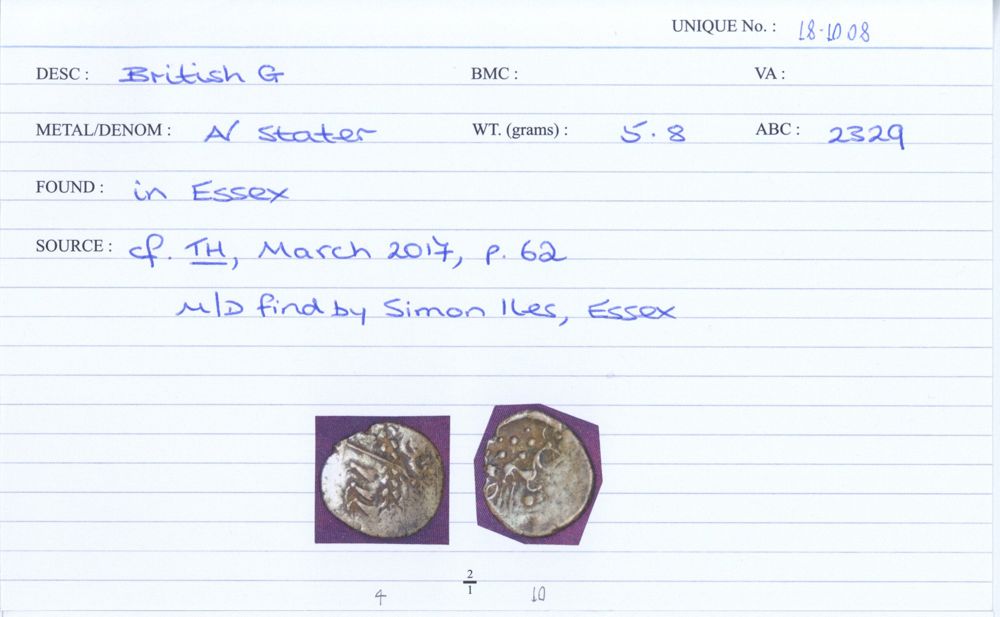 UNIQUE No. : 18·1008
DESC : British G BMC : VA :
METAL/DENOM : N Stater WT. (grams) : 5.8 ABC : 2329
FOUND : in Essex
SOURCE : cf. TH, March 2017, p. 62
M/D find by Simon Iles, Essex
2
1
4 10